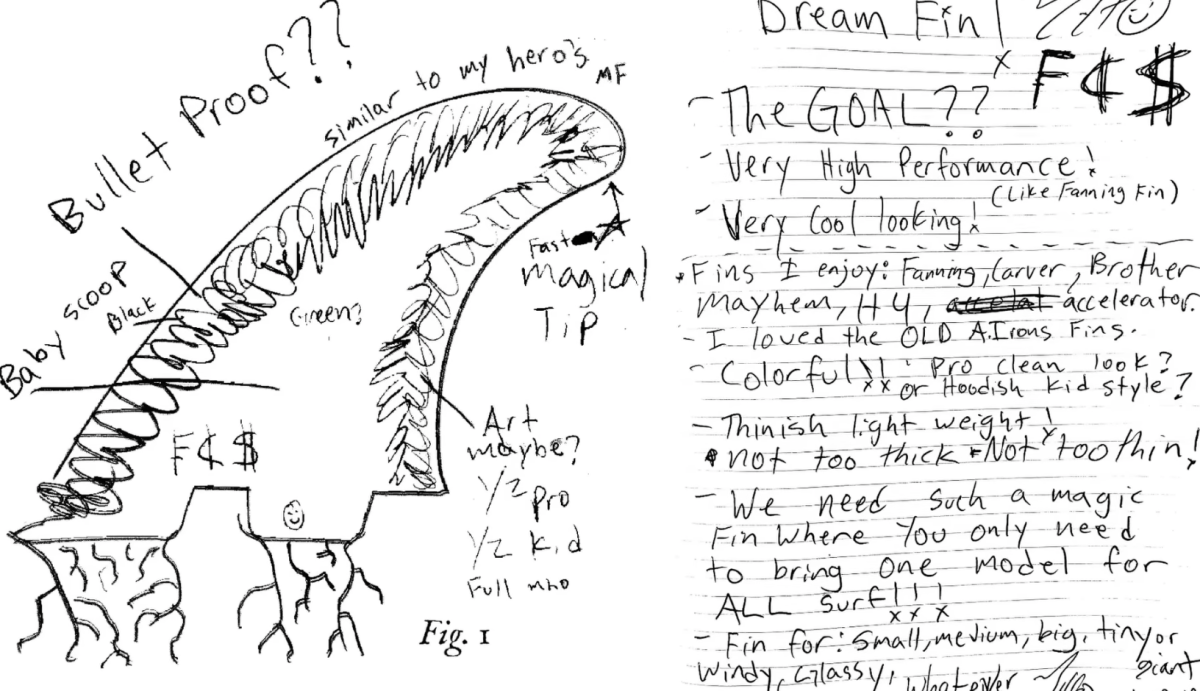 Bullet Proof??
similar to my hero's MF
Baby scoop
Black
Green?
Fast
magical
Tip
F¢$
Art
maybe?
1/2 Pro
1/2 Kid
Full
Fig. 1
Dream Fin!
x F¢$
- The GOAL??
- Very High Performance!
(Like Fanning Fin)
- Very Cool looking!
• Fins I enjoy: Fanning, Carver, Brother
Mayhem, H4, accelerator.
- I loved the OLD A.Irons Fins.
- Colorful!! : Pro clean look?
or Hoodish Kid style?
- Thinish light weight!
• not too thick • Not too thin!
- We need such a magic
Fin where You only need
to bring one model for
ALL Surf!!!
- Fin for: Small, medium, big, tiny or
giant
windy, Glassy, whatever